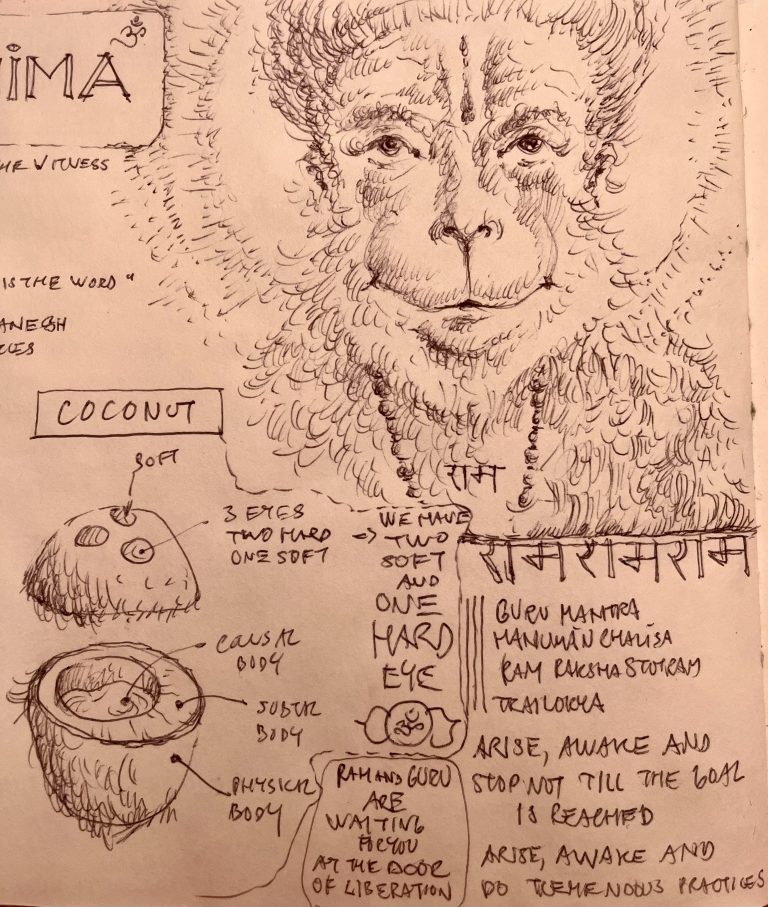 IMA
ॐ
HE WITNESS
IS THE WORD"
ANESH
COCONUT
SOFT
3 EYES
TWO HARD
ONE SOFT
WE HAVE
TWO
SOFT
AND
ONE
HARD
EYE
ॐ
CAUSAL
BODY
SUBTAL
BODY
PHYSICAL
BODY
RAM AND GURU
ARE
WAITING
FOR YOU
AT THE DOOR
OF LIBERATION
राम
रामरामराम
GURU MANTRA
HANUMĀN CHALISA
RAM RAKSHA STOTRAM
TRAILOKYA
ARISE, AWAKE AND
STOP NOT TILL THE GOAL
IS REACHED
ARISE, AWAKE AND
DO TREMENDOUS PRACTICES